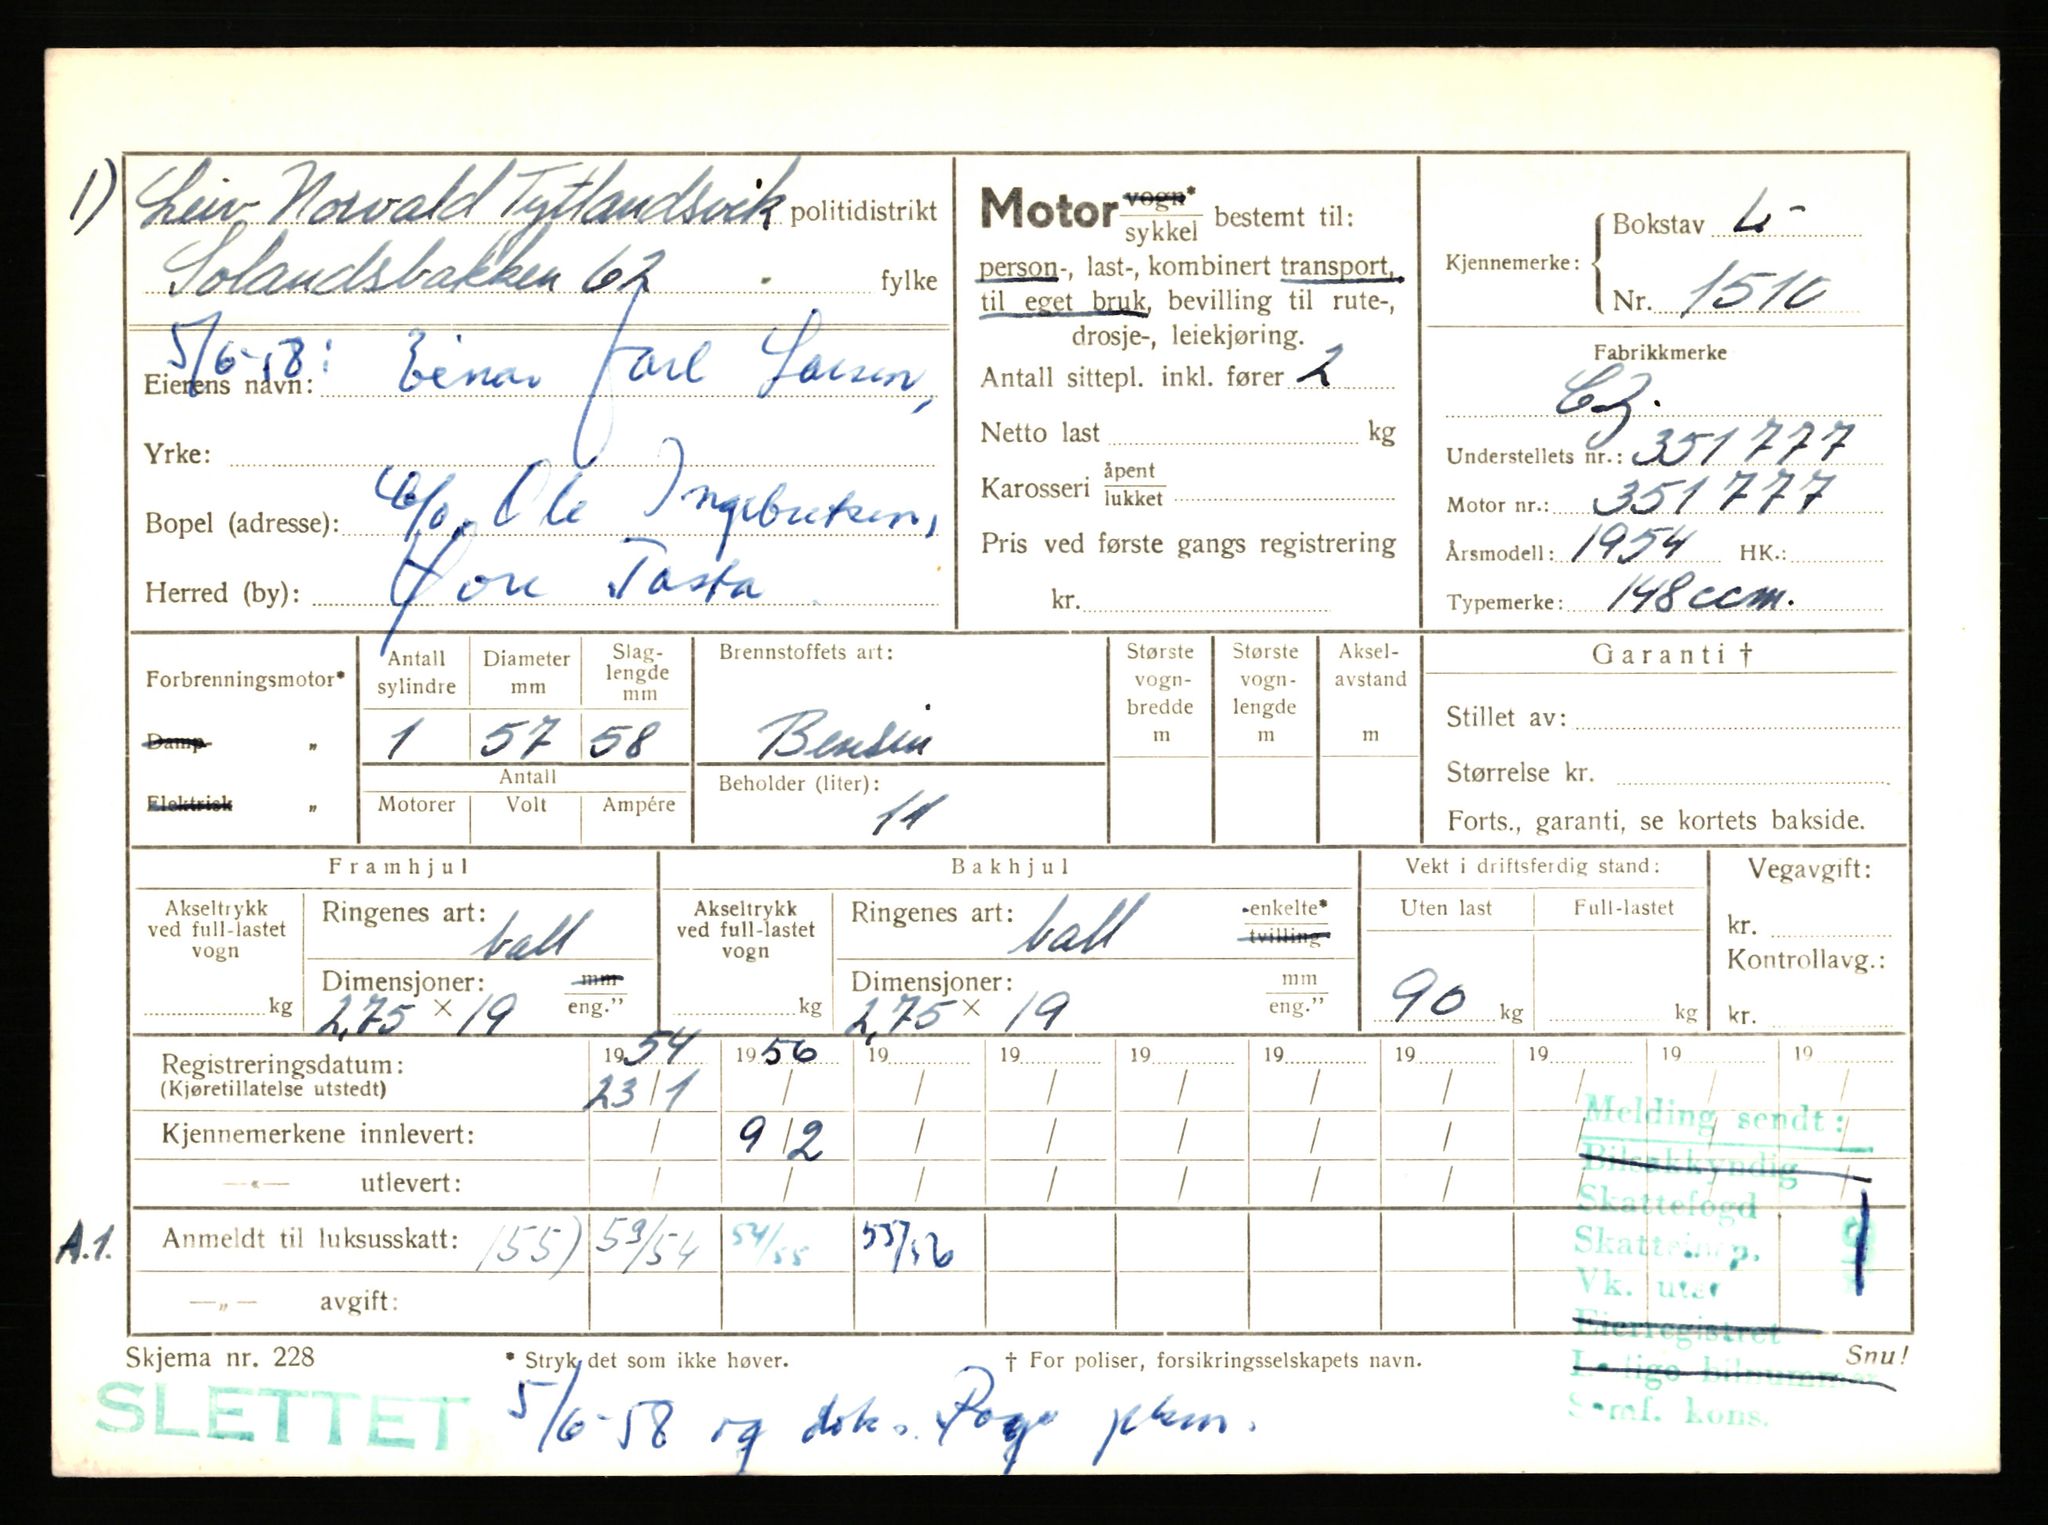 1) Leiv Norvald Tytlandsvik politidistrikt
Solandsbakken 62 fylke
5/6-58: Einar Jarl Larsen,
Eierens navn:
Yrke:
Bopel (adresse): c/o. Ole Ingebretsen,
Herred (by): Øvre Tasta
Motor vogn* sykkel bestemt til:
person-, last-, kombinert transport,
til eget bruk, bevilling til rute-,
drosje-, leiekjøring.
Antall sittepl. inkl. fører 2
Netto last kg
Karosseri åpent lukket
Pris ved første gangs registrering
kr.
Kjennemerke: Bokstav L-
Nr. 1510
Fabrikkmerke
CZ.
Understellets nr.: 351777
Motor nr.: 351777
Årsmodell: 1954 HK.:
Typemerke: 148 ccm.
Forbrenningsmotor*
Damp- „
Elektrisk „
Antall sylindre
1
Diameter mm
57
Slag-lengde mm
58
Antall
Motorer Volt Ampére
Brennstoffets art:
Bensin
Beholder (liter):
11
Største vogn-bredde m
Største vogn-lengde m
Aksel-avstand m
Garanti †
Stillet av:
Størrelse kr.
Forts., garanti, se kortets bakside.
Framhjul
Akseltrykk ved full-lastet vogn
kg
Ringenes art: ball
Dimensjoner: mm eng.”
2,75 × 19
Bakhjul
Akseltrykk ved full-lastet vogn
kg
Ringenes art: ball enkelte* tvilling
Dimensjoner: mm eng.”
2,75 × 19
Vekt i driftsferdig stand:
Uten last Full-lastet
90 kg kg
Vegavgift:
kr.
Kontrollavg.:
kr.
Registreringsdatum: 1954 1956 19 19 19 19 19 19 19 19
(Kjøretillatelse utstedt) 23/1
Kjennemerkene innlevert: 9/2
—«— utlevert:
A.1. Anmeldt til luksusskatt: 155) 53/54 54/55 55/56
—„— avgift:
Melding sendt:
Bilsakkyndig
Skattefogd
Vk.
Eierregistret
kons.
Skjema nr. 228 * Stryk det som ikke høver. † For poliser, forsikringsselskapets navn. Snu!
SLETTET
5/6-58 og dok.